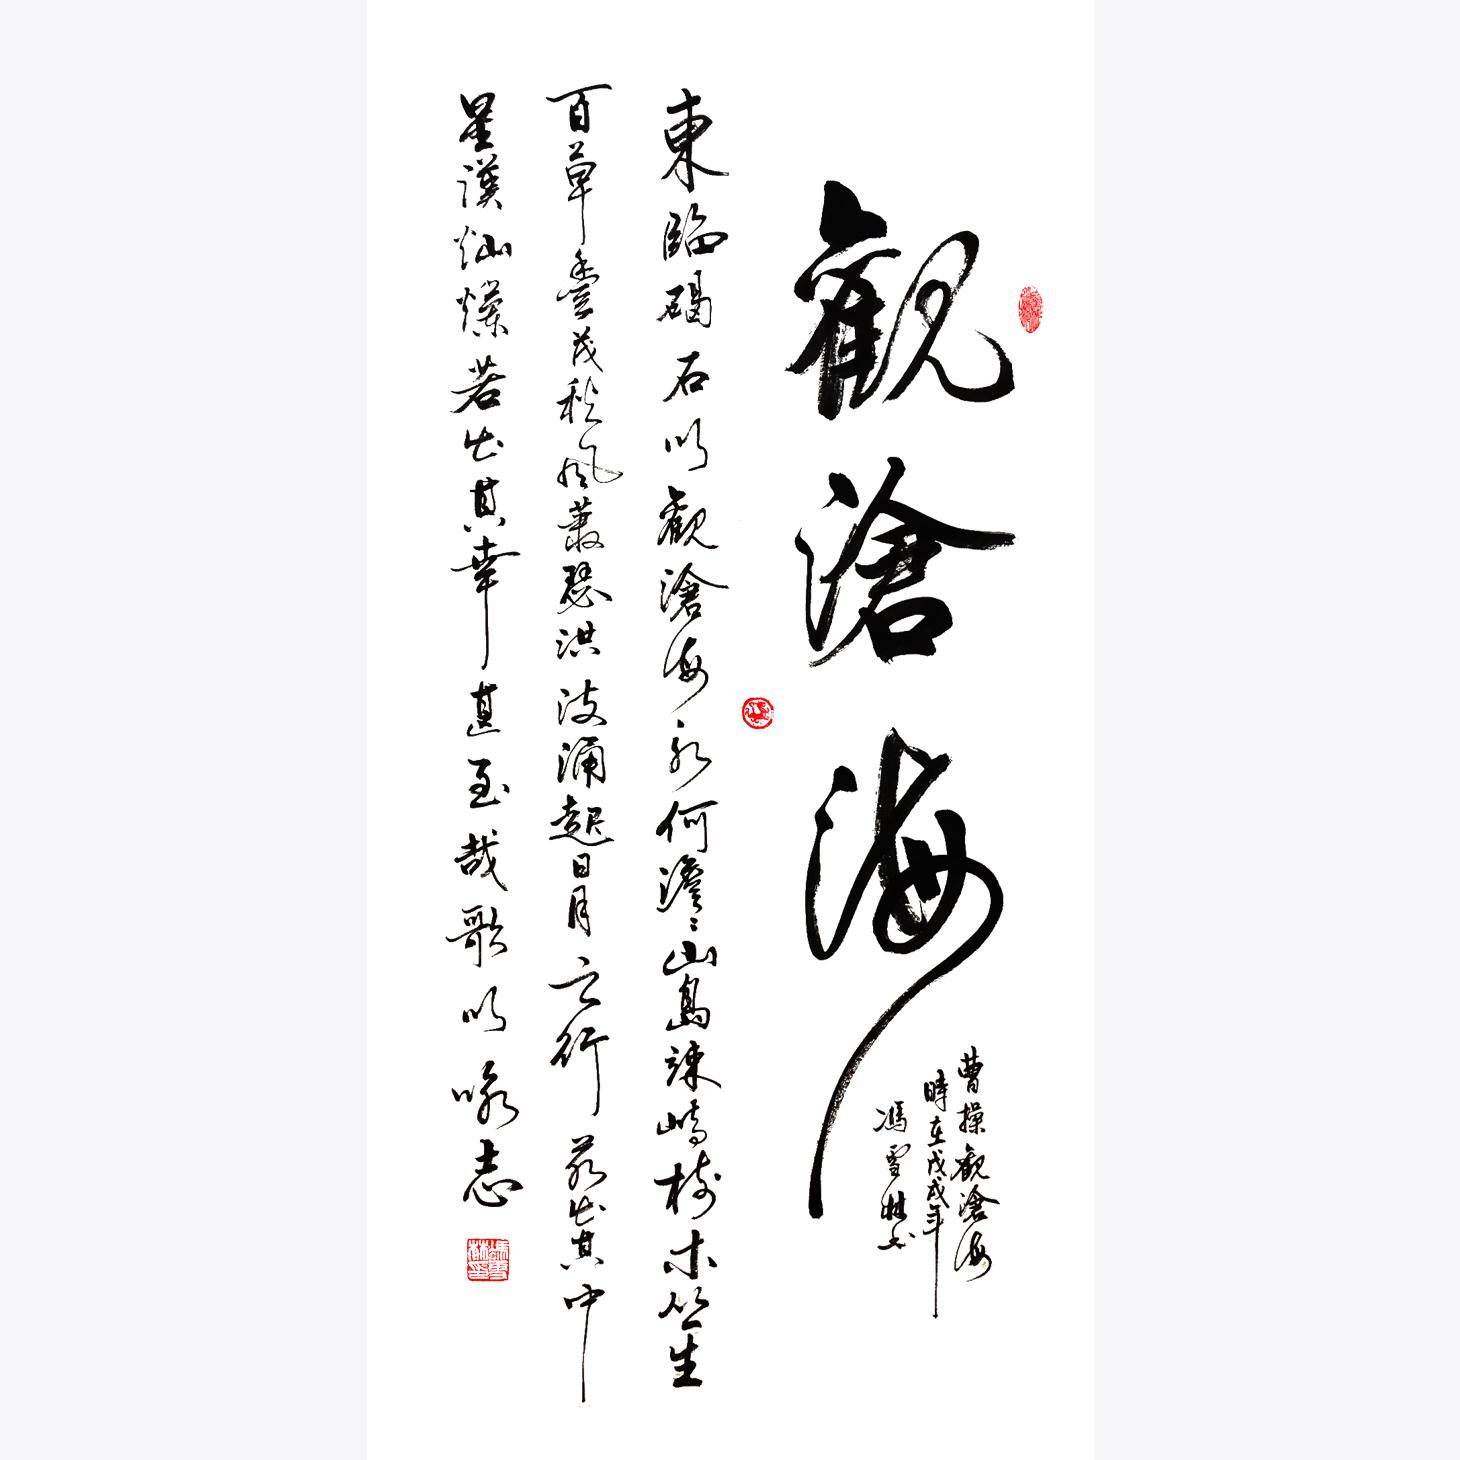 觀滄海
曹操觀滄海
時在戊戌年
馮雪林书
東臨碣石以觀滄海水何澹〻山島竦峙樹木丛生
百草豐茂秋風蕭瑟洪波涌起日月之行若出其中
星漢灿爛若出其幸甚至哉歌以咏志
馮雪林印